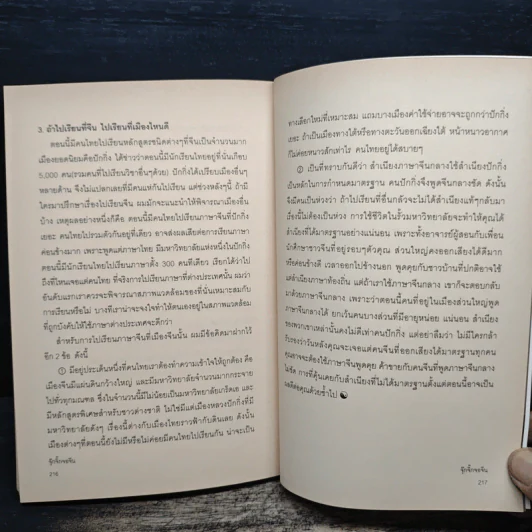 3. ถ้าไปเรียนที่จีน ไปเรียนที่เมืองไหนดี
ตอนนี้มีคนไทยไปเรียนหลักสูตรชนิดต่างๆที่จีนเป็นจำนวนมาก
เมืองยอดนิยมคือปักกิ่ง ได้ข่าวว่าตอนนี้มีนักเรียนไทยอยู่ที่นั่นเกือบ
5,000 คน(รวมคนที่ไปเรียนวิชาอื่นๆด้วย) ปักกิ่งได้เปรียบเมืองอื่นๆ
หลายด้าน จึงไม่แปลกเลยที่มีคนแห่กันไปเรียน แต่ช่วงหลังๆนี้ ถ้ามี
ใครมาปรึกษาเรื่องไปเรียนจีน ผมมักจะแนะนำให้พิจารณาเมืองอื่น
บ้าง เหตุผลอย่างหนึ่งก็คือ ตอนนี้มีคนไทยไปเรียนภาษาจีนที่ปักกิ่ง
เยอะ คนไทยไปรวมตัวกันอยู่ที่เดียว อาจส่งผลเสียต่อการเรียนภาษา
ค่อนข้างมาก เพราะพูดแต่ภาษาไทย มีมหาวิทยาลัยแห่งหนึ่งในปักกิ่ง
ตอนนี้มีนักเรียนไทยไปเรียนภาษาตั้ง 300 คนทีเดียว เรียกได้ว่าไป
ถึงที่ไหนเจอแต่คนไทย ที่จริงการไปเรียนภาษาที่ต่างประเทศนั้น ผมว่า
อันดับแรกเราควรจะพิจารณาสภาพแวดล้อมของที่นั่นเหมาะสมกับ
การเรียนหรือไม่ บางทีเราน่าจะจงใจทำให้ตนเองอยู่ในสภาพแวดล้อม
ที่ถูกบังคับให้ใช้ภาษาต่างประเทศจะดีกว่า
สำหรับการไปเรียนภาษาที่เมืองจีนนั้น ผมมีข้อคิดมาฝากไว้
อีก 2 ข้อ ดังนี้
① มีอยู่ประเด็นหนึ่งที่คนไทยเราต้องทำความเข้าใจให้ถูกต้อง คือ
เมืองจีนมีแผ่นดินกว้างใหญ่ และมีมหาวิทยาลัยจำนวนมากกระจาย
ไปทั่วทุกมณฑล ซึ่งในจำนวนนี้มีไม่น้อยเป็นมหาวิทยาลัยเกรดเอ และ
มีหลักสูตรพิเศษสำหรับชาวต่างชาติ ไม่ใช่มีแต่เมืองหลวงปักกิ่งที่มี
มหาวิทยาลัยดังๆ เรื่องนี้ต่างกับเมืองไทยราวฟ้ากับดินเลย ดังนั้น
เมืองต่างๆที่ตอนนี้ยังไม่มีหรือไม่ค่อยมีคนไทยไปเรียนกัน น่าจะเป็น
จุ๊กจิ๊กจอจีน
216
ทางเลือกใหม่ที่เหมาะสม แถมบางเมืองค่าใช้จ่ายอาจจะถูกกว่าปักกิ่ง
เยอะ ถ้าเป็นเมืองทางใต้หรือทางตะวันออกเฉียงใต้ หน้าหนาวอากาศ
ก็ไม่ค่อยหนาวสักเท่าไร คนไทยอยู่ได้สบายๆ
① เป็นที่ทราบกันดีว่า สำเนียงภาษาจีนกลางใช้สำเนียงปักกิ่ง
เป็นหลักในการกำหนดมาตรฐาน คนปักกิ่งจึงพูดจีนกลางชัด ดังนั้น
จึงมีคนเป็นห่วงว่า ถ้าไปเรียนที่อื่นกลัวจะไม่ได้สำเนียงแท้ๆกลับมา
เรื่องนี้ไม่ต้องเป็นห่วง การใช้ชีวิตในรั้วมหาวิทยาลัยจะทำให้คุณได้
สำเนียงที่ได้มาตรฐานอย่างแน่นอน เพราะทั้งอาจารย์ผู้สอนกับเพื่อน
นักศึกษาชาวจีนที่อยู่รอบๆตัวคุณ ส่วนใหญ่คงออกเสียงได้ดีมาก
หรือค่อนข้างดี เวลาออกไปข้างนอก พูดคุยกับชาวบ้านที่ปกติอาจใช้
แต่สำเนียงภาษาท้องถิ่น แต่ถ้าเราใช้ภาษาจีนกลาง เขาก็จะตอบกลับ
มาด้วยภาษาจีนกลาง เพราะว่าตอนนี้คนที่อยู่ในเมืองส่วนใหญ่พูด
ภาษาจีนกลางได้ ยกเว้นคนบางส่วนที่มีอายุหน่อย แน่นอน สำเนียง
ของพวกเขาเหล่านั้นคงไม่ดีเท่าคนปักกิ่ง แต่อย่าลืมว่า ไม่มีใครกล้า
รับรองว่าวันหลังคุณจะเจอแต่คนจีนที่ออกเสียงได้มาตรฐานทุกคน
คุณอาจจะต้องใช้ภาษาจีนพูดคุย ค้าขายกับคนจีนที่พูดภาษาจีนกลาง
ไม่ชัด การที่คุ้นเคยกับสำเนียงที่ไม่ได้มาตรฐานตั้งแต่ตอนนี้อาจเป็น
ผลดีต่อคุณด้วยซ้ำไป
จุ๊กจิ๊กจอจีน
217